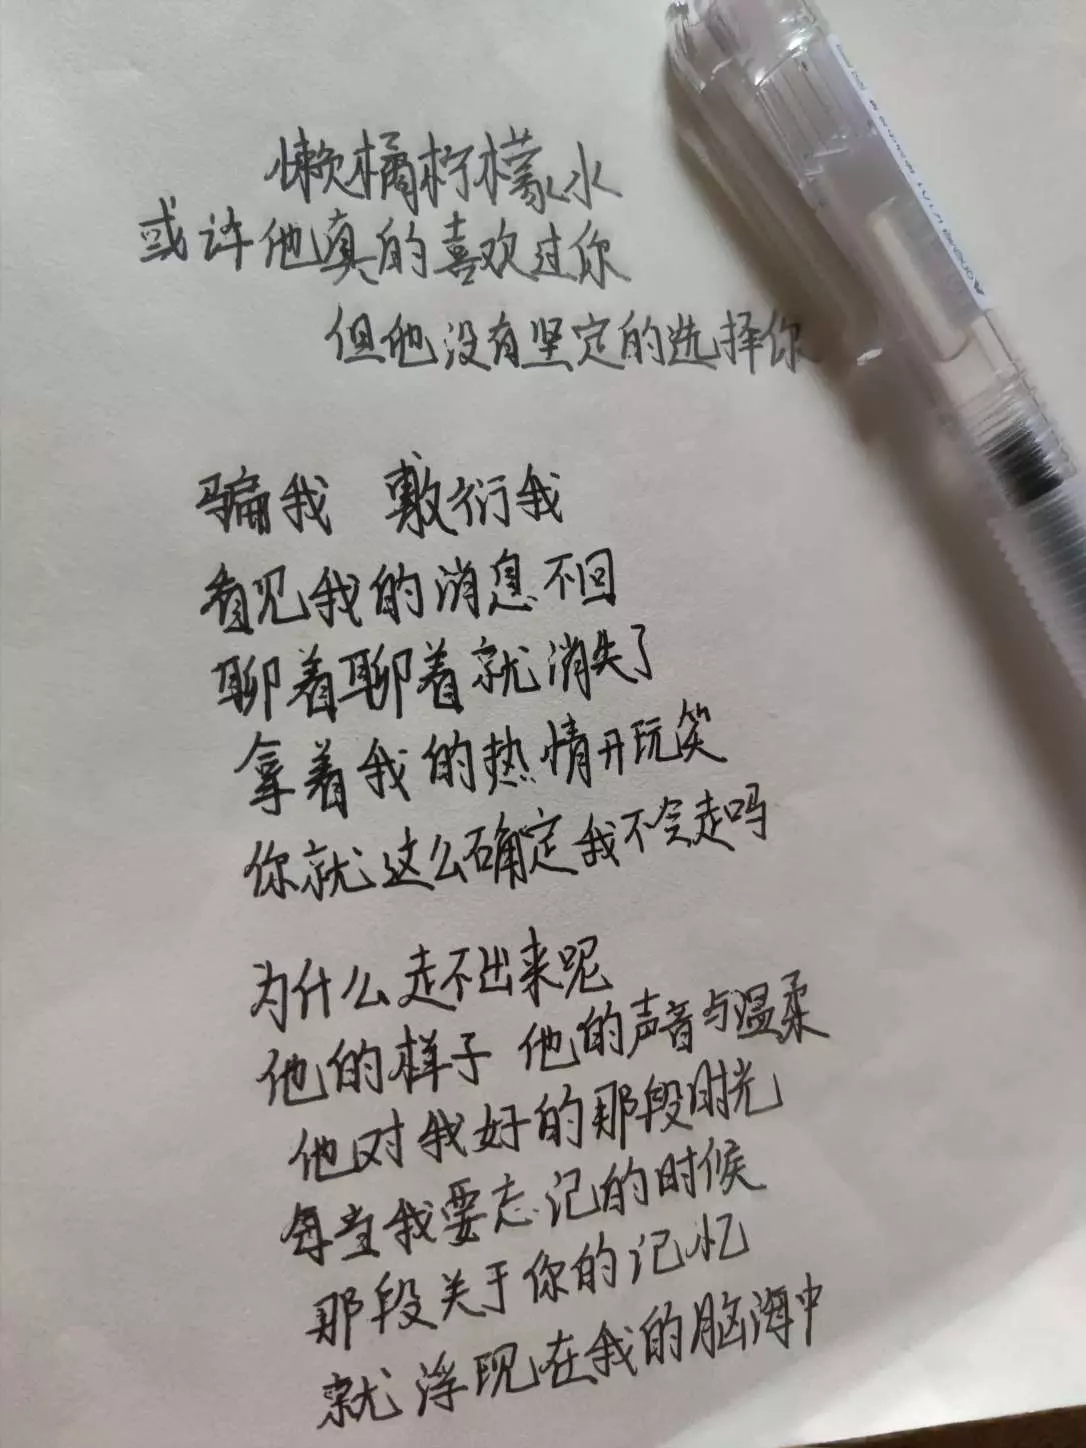 懒橘柠檬水
或许他真的喜欢过你
但他没有坚定的选择你
骗我 敷衍我
看见我的消息不回
聊着聊着就消失了
拿着我的热情开玩笑
你就这么确定我不会走吗
为什么走不出来呢
他的样子 他的声音与温柔
他对我好的那段时光
每当我要忘记的时候
那段关于你的记忆
就浮现在我的脑海中